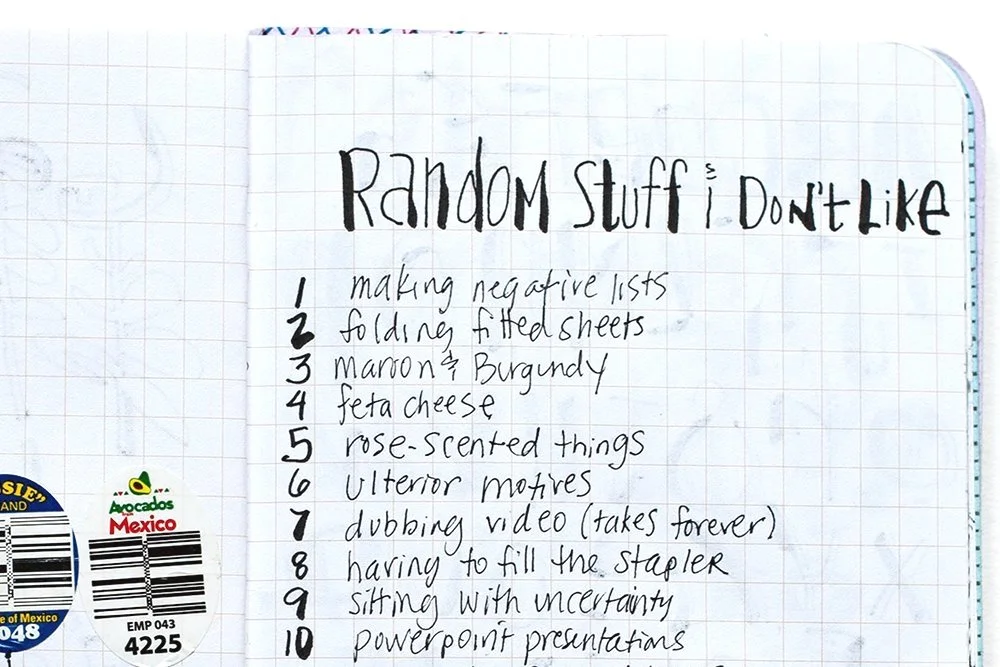 Random Stuff i Don't Like
1 making negative lists
2 folding fitted sheets
3 maroon & Burgundy
4 feta cheese
5 rose-scented things
6 ulterior motives
7 dubbing video (takes forever)
8 having to fill the stapler
9 sitting with uncertainty
10 powerpoint presentations
SIE"
AND
e of Mexico
048
Avocados
from
Mexico
EMP 043
4225